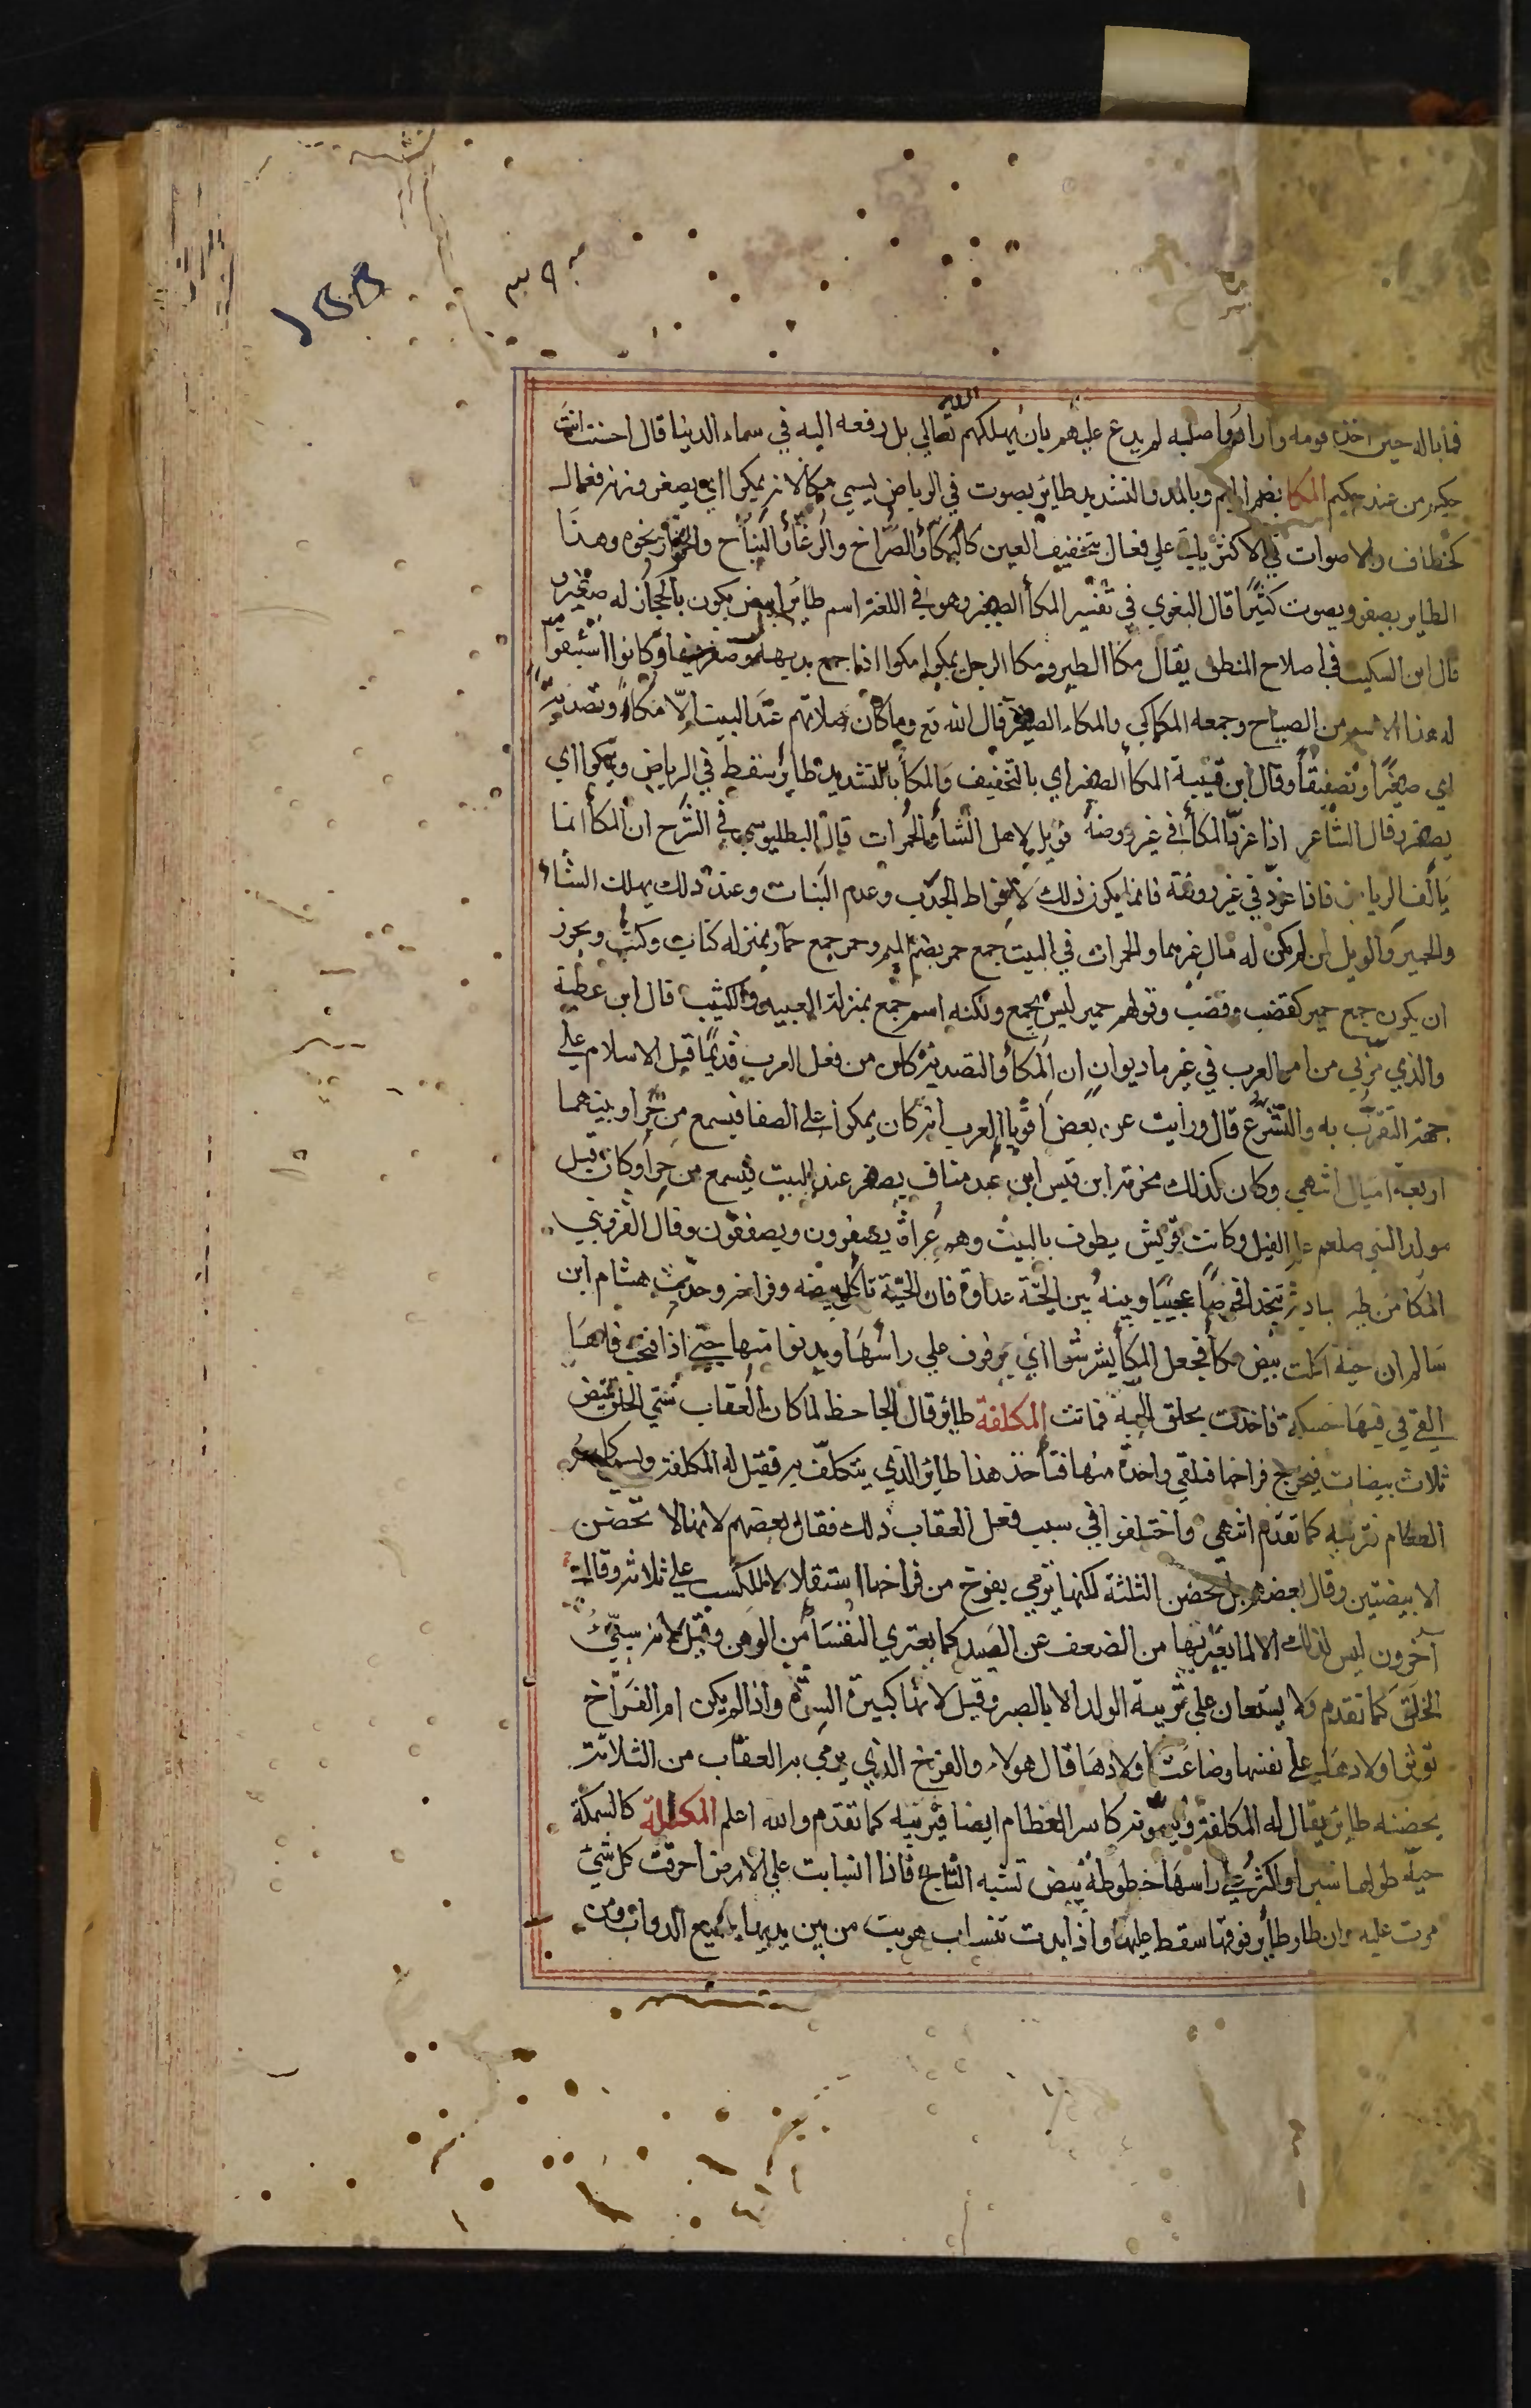 ١٥٥
٣٩٠
فما باله حين اخذه قومه وارادوا صلبه لم يدع عليهم بان يهلكهم الله تعالي بل رفعه اليه في سماء الدنيا قال احسنت انت
حكيم من عند حكيم المكا بضم الميم وبالمد والتشديد طائر يصوت في الرياض يسمي مكا لانه يمكوا اي يصفر وزنه فعال
كخطاف والاصوات في الاكثر ياتي علي فعال بتخفيف العين كالبكاء والصراخ والرغاء والنباح والخوار ونحوه وهذا
الطاير يصفر ويصوت كثيرا قال البغوي في تفسير المكأ الصفير وهو في اللغة اسم طائر ابيض يكون بالحجاز له صغير
قال ابن السكيت في اصلاح المنطق يقال مكا الطير ومكا الرجل يمكوا مكوا اذا جمع يديه وصفر فيهما وكانوا اشبقوا
له هذا الاسم من الصياح وجمعه المكاكي والمكاء الصفير قال الله تع وما كان صلاتهم عند البيت الا مكاء وتصدية
اي صفيرا وتصفيقا وقال ابن قتيبة المكأ الصفير اي بالتخفيف والمكأ بالتشديد طائر يسقط في الرياض ويمكوا اي
يصفر وقال الشاعر اذا غرد المكأ في غير روضة فويل لاهل الشاء والحمرات قال البطليوسي في الشرح ان المكأ انما
يالف الرياض فاذا غرد في غير روضة فانما يكون ذلك لافراط الجدب وعدم النبات وعند ذلك يهلك الشاء
والحمير والويل لمن لم يكن له مال غيرهما والحمرات في البيت جمع حمر بضم الميم وحمر جمع حمار بمنزله كتاب وكتب ويجوز
ان يكون جمع حمير كقضيب وقضب وقولهم حمير ليس بجمع ولكنه اسم جمع بمنزلة العبيد والكثيب قال ابن عطية
والذي مر بي من امر العرب في غير ما ديوان ان المكأ والتصدية كان من فعل العرب قديما قبل الاسلام علي
جهة التقرب به والتشرع قال ورايت عن بعض اقويا العرب انه كان يمكوا علي الصفا فيسمع من حرا وبينهما
اربعة اميال انتهي وكان كذلك مخرمة ابن قيس ابن عبد مناف يصفر عند البيت فيسمع من حرا وكان قبل
مولد النبي صلعم عام الفيل وكانت قريش يطوف بالبيت وهم عراة يصفرون ويصفقون وقال القزويني
المكا من طير البادية يتخذ افحوصا عجيبا وبينه بين الحية عداوة فان الحية تاكل بيضه وفراخه وحدث هشام ابن
سالم ان حية اكلت بيض مكا فجعل المكأ يشرشوا اي يرفرف علي راسها ويدنوا منها حتي اذا فتحت فاها
القي في فيها حسكة فاخذت بحلق الحية فماتت المكلفة طائر قال الجاحظ لما كان العقاب سيّي الخلق تبيض
ثلاث بيضات فيخرج فراخها فتلقي واحدة منها فتأخذ هذا طائر الذي يتكلف به فقيل له المكلفة ويسمي كاسر
العظام فتربيه كما تقدم انتهي واختلفوا في سبب فعل العقاب ذلك فقال بعضهم لانها لا تحضن
الا بيضتين وقال بعضهم بل تحضن الثلثة لكنها ترمي بفرخ من فراخها استثقالا للكسب علي ثلاثة وقال
آخرون ليس ذلك الا لما يعتريها من الضعف عن الصيد كما يعتري النفسا من الوهن وقيل لانه سيّئ
الخلق كما تقدم ولا يستعان علي تربية الولد الا بالصبر وقيل لانها كبيرة الشره واذا لم يكن ام الفراخ
توثر اولادها علي نفسها وضاعت اولادها قال هولاء والفرخ الذي يرمي به العقاب من الثلاثة
يحضنه طائر يقال له المكلفة ويسمونه كاسر العظام ايضا فيربيه كما تقدم والله اعلم المكللة كالسمكة
حية طولها شبر او اكثر علي راسها خطوطة بيض تشبه التاج فاذا انسابت علي الارض احرقت كل شئ
مرت عليه وان طار طائر فوقها سقط عليها واذا بدت تنساب هربت من بين يديها جميع الدواب ومن